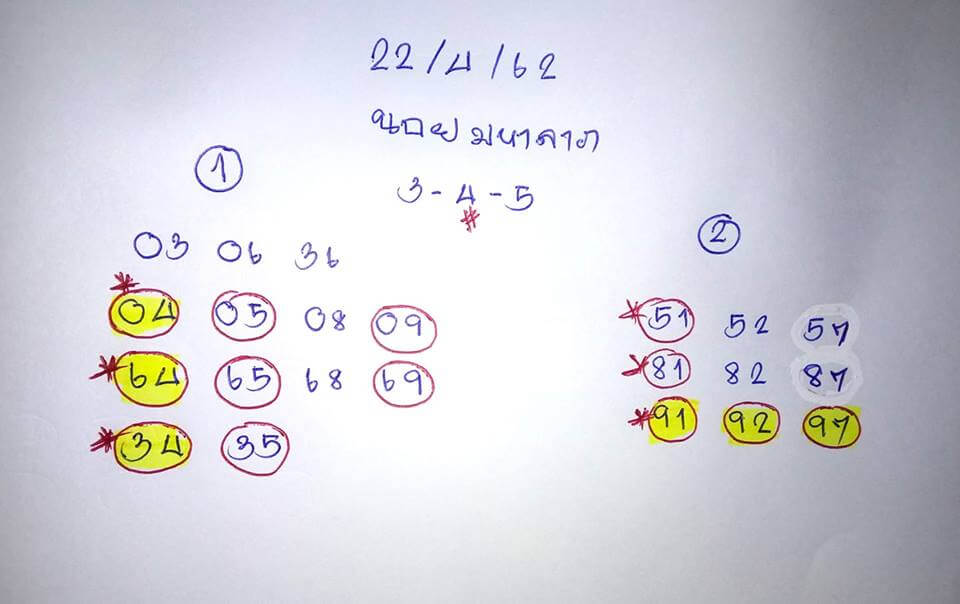 22/4/62
ฮานอย มหาลาภ
3-4-5
#
1
03 06 36
*04 05 08 09
*64 65 68 69
*34 35
2
*51 52 57
*81 82 87
*91 92 97